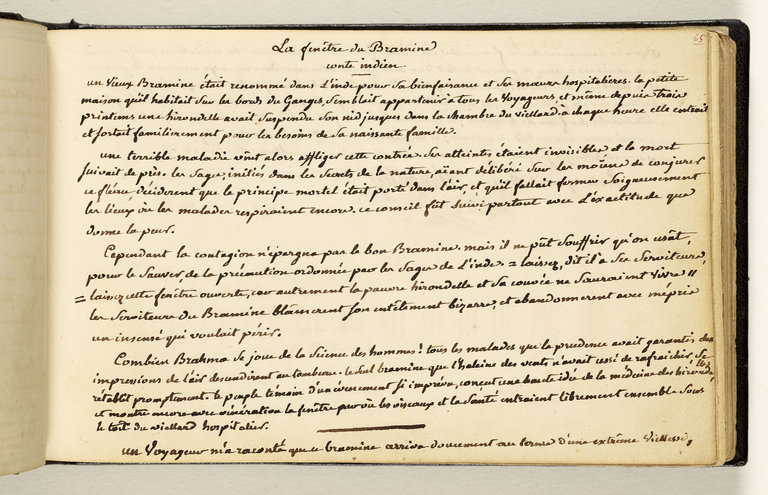 65
La fenêtre du Bramine
conte indien
un vieux Bramine était renommé dans L'inde pour sa bienfaisance et ses mœurs hospitalieres. la petite
maison qu'il habitait sur les bords du Ganges, semblait appartenir à tous les Voyageurs, et même depuis trois
printems une hirondelle avait suspendu son nid jusques dans la chambre du viellard à chaque heure elle entrait
et sortait familierement pour les besoins de sa naissante famille.
une terrible maladie vint alors affliger cette contrée. Ses atteintes étaient invisibles et la mort
suivait de près. les Sages, initiés dans les secrets de la nature, aïant délibéré sur les moïens de conjurer
ce fléau, déciderent que le principe mortel était porté dans l'air, et qu'il fallait fermer soigneusement
les lieux où les malades respiraient encore. ce conseil fut suivi partout avec L'éxactitude que
donne la peur.
Cependant la contagion n'épargna pas le bon Bramine. mais il ne pût souffrir qu'on usât,
pour le sauver, de la précaution ordonnée par les Sages de L'inde. = laissez, dit il à ses serviteurs,
= laissez cette fenêtre ouverte, car autrement la pauvre hirondelle et sa couvée ne sauraient vivre =
les serviteurs du Bramine blâmerent son entêtement bizarre, et abandonnerent avec mépris
un insensé qui voulait périr.
Combien Brahma se joue de la science des hommes! tous les malades que la prudence avait garantis des
impressions de l'air descendirent au tombeau. le seul bramine que l'haleine des vents n'avait cessé de rafraichir, se
rétablit promptement. le peuple témoin d'un évenement si imprévu, conçut une haute idée de la médecine des hirondelles
et montre encore avec vénération la fenêtre par où les oiseaux et la santé entraient librement ensemble sous
le toit du viellard hospitalier.
un Voyageur m'a raconté que ce bramine arriva doucement au terme d'une extrême viellesse,